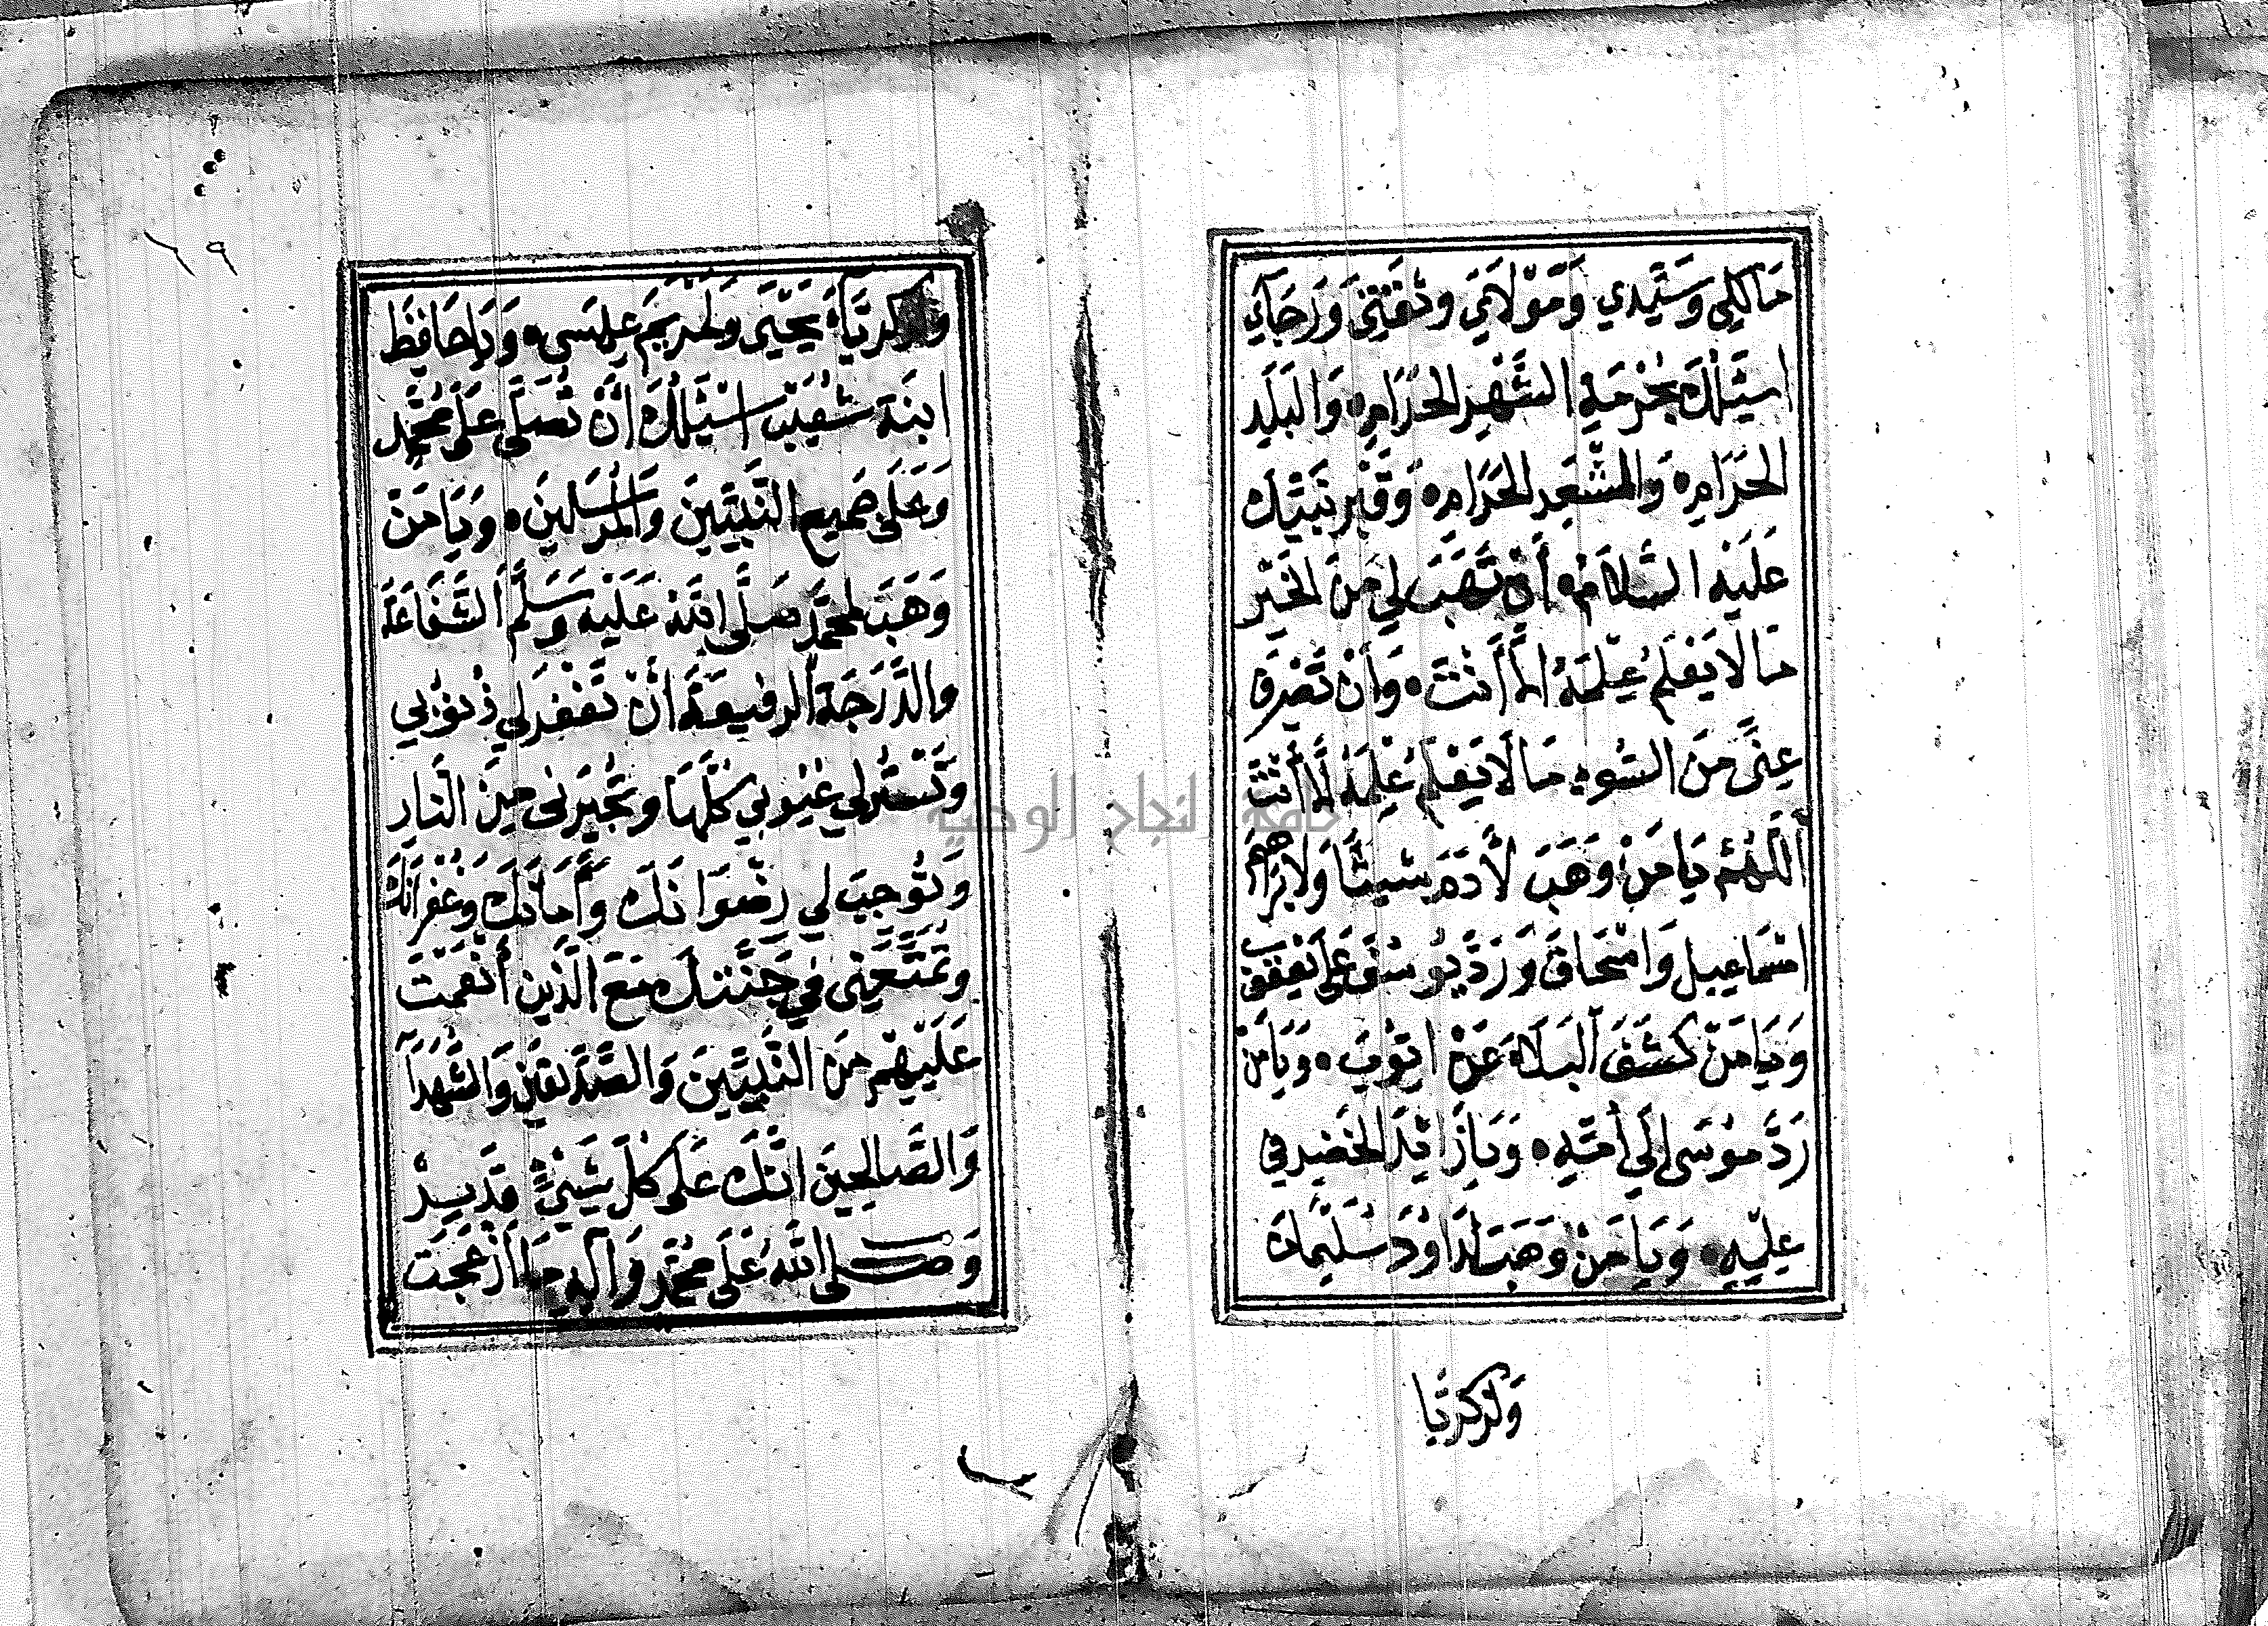 مَالِكِي وَسَيِّدِي وَمَوْلَايَ وَثِقَتِي وَرَجَآئِي
اسْئَلُكَ بِحُرْمَةِ الشَّهْرِ الْحَرَامِ وَالْبَلَدِ
الْحَرَامِ وَالْمَشْعَرِ الْحَرَامِ وَقَبْرِ نَبِيِّكَ
عَلَيْهِ السَّلَامُ أَنْ تَهَبَ لِي مِنَ الْخَيْرِ
مَا لَا يَعْلَمُ عِلْمَهُ إِلَّا أَنْتَ وَأَنْ تَصْرِفَ
عَنِّي مِنَ السُّوءِ مَا لَا يَعْلَمُ عِلْمَهُ إِلَّا أَنْتَ
اَللّٰهُمَّ يَا مَنْ وَهَبَ لِأَدَمَ شِيثًا وَلِابْرَاهِيمَ
اسْمَاعِيلَ وَاسْحَاقَ وَرَدَّ يُوسُفَ عَلَى يَعْقُوبَ
وَيَا مَنْ كَشَفَ الْبَلَاءَ عَنْ ايُّوبَ وَيَا مَنْ
رَدَّ مُوسَى إِلَى أُمِّهِ وَيَا زَائِدَ الْخَضِرِ فِي
عِلْمِهِ وَيَا مَنْ وَهَبَ لِدَاوُدَ سُلَيْمَانَ
وَلِزَكَرِيَّا
١٩
وَلِزَكَرِيَّاءَ يَحْيَى وَلِمَرْيَمَ عِيسَى وَيَا حَافِظَ
ابْنَةِ شُعَيْبٍ اسْئَلُكَ أَنْ تُصَلِّيَ عَلَى مُحَمَّدٍ
وَعَلَى جَمِيعِ النَّبِيِّينَ وَالْمُرْسَلِينَ وَيَا مَنْ
وَهَبَ لِمُحَمَّدٍ صَلَّى اللّٰهُ عَلَيْهِ وَسَلَّمَ الشَّفَاعَةَ
وَالدَّرَجَةَ الرَّفِيعَةَ أَنْ تَغْفِرَ لِي ذُنُوبِي
وَتَسْتُرَ لِي عُيُوبِي كُلَّهَا وَتُجِيرَنِي مِنَ النَّارِ
وَتُوجِبَ لِي رِضْوَانَكَ وَأَمَانَكَ وَغُفْرَانَكَ
وَتُمَتِّعَنِي فِي جَنَّتِكَ مَعَ الَّذِينَ أَنْعَمْتَ
عَلَيْهِمْ مِنَ النَّبِيِّينَ وَالصِّدِّيقِينَ وَالشُّهَدَآ
وَالصَّالِحِينَ انَّكَ عَلَى كُلِّ شَيْئٍ قَدِيرٌ
وَصَلَّى اللّٰهُ عَلَى مُحَمَّدٍ وَآلِهِ مَا أَزْعَجَتِ
جامعة النجاح الوطنية